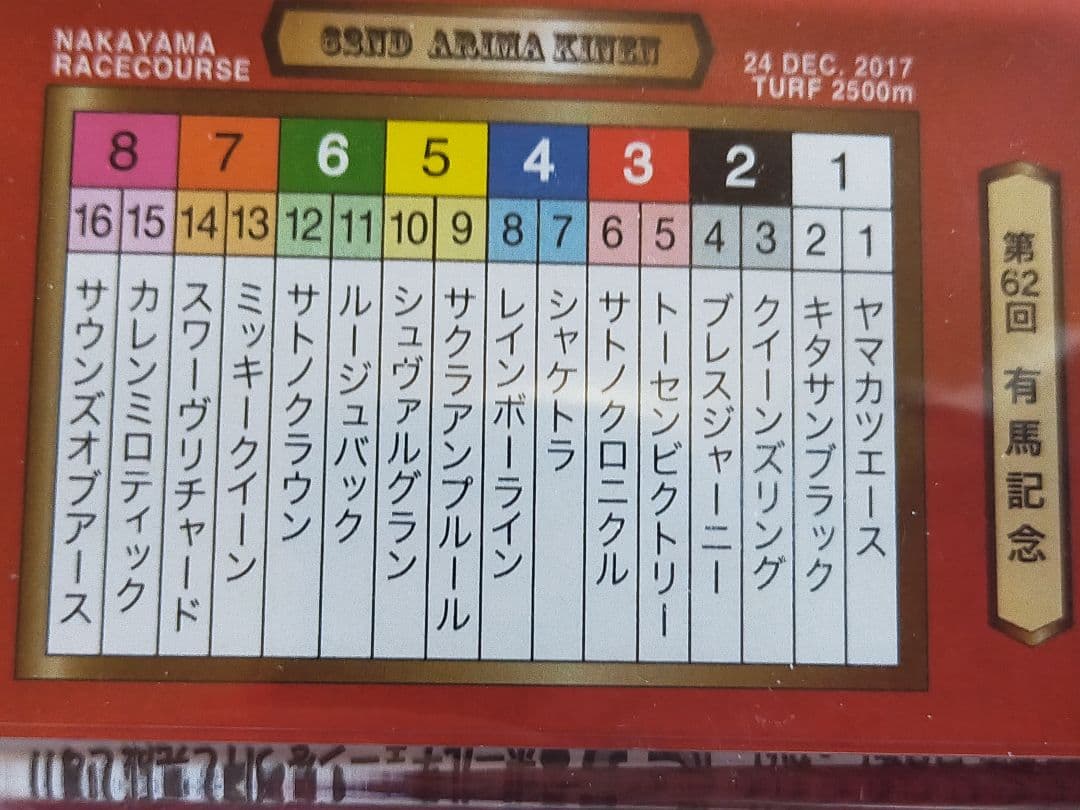 NAKAYAMA
RACECOURSE
62ND ARIMA KINEN
24 DEC. 2017
TURF 2500m
8 7 6 5 4 3 2 1
16 15 14 13 12 11 10 9 8 7 6 5 4 3 2 1
ヤマカツエース
キタサンブラック
クイーンズリング
ブレスジャーニー
トーセンビクトリー
サトノクロニクル
シャケトラ
レインボーライン
サクラアンプルール
シュヴァルグラン
ルージュバック
サトノクラウン
ミッキークイーン
スワーヴリチャード
カレンミロティック
サウンズオブアース
第62回 有馬記念